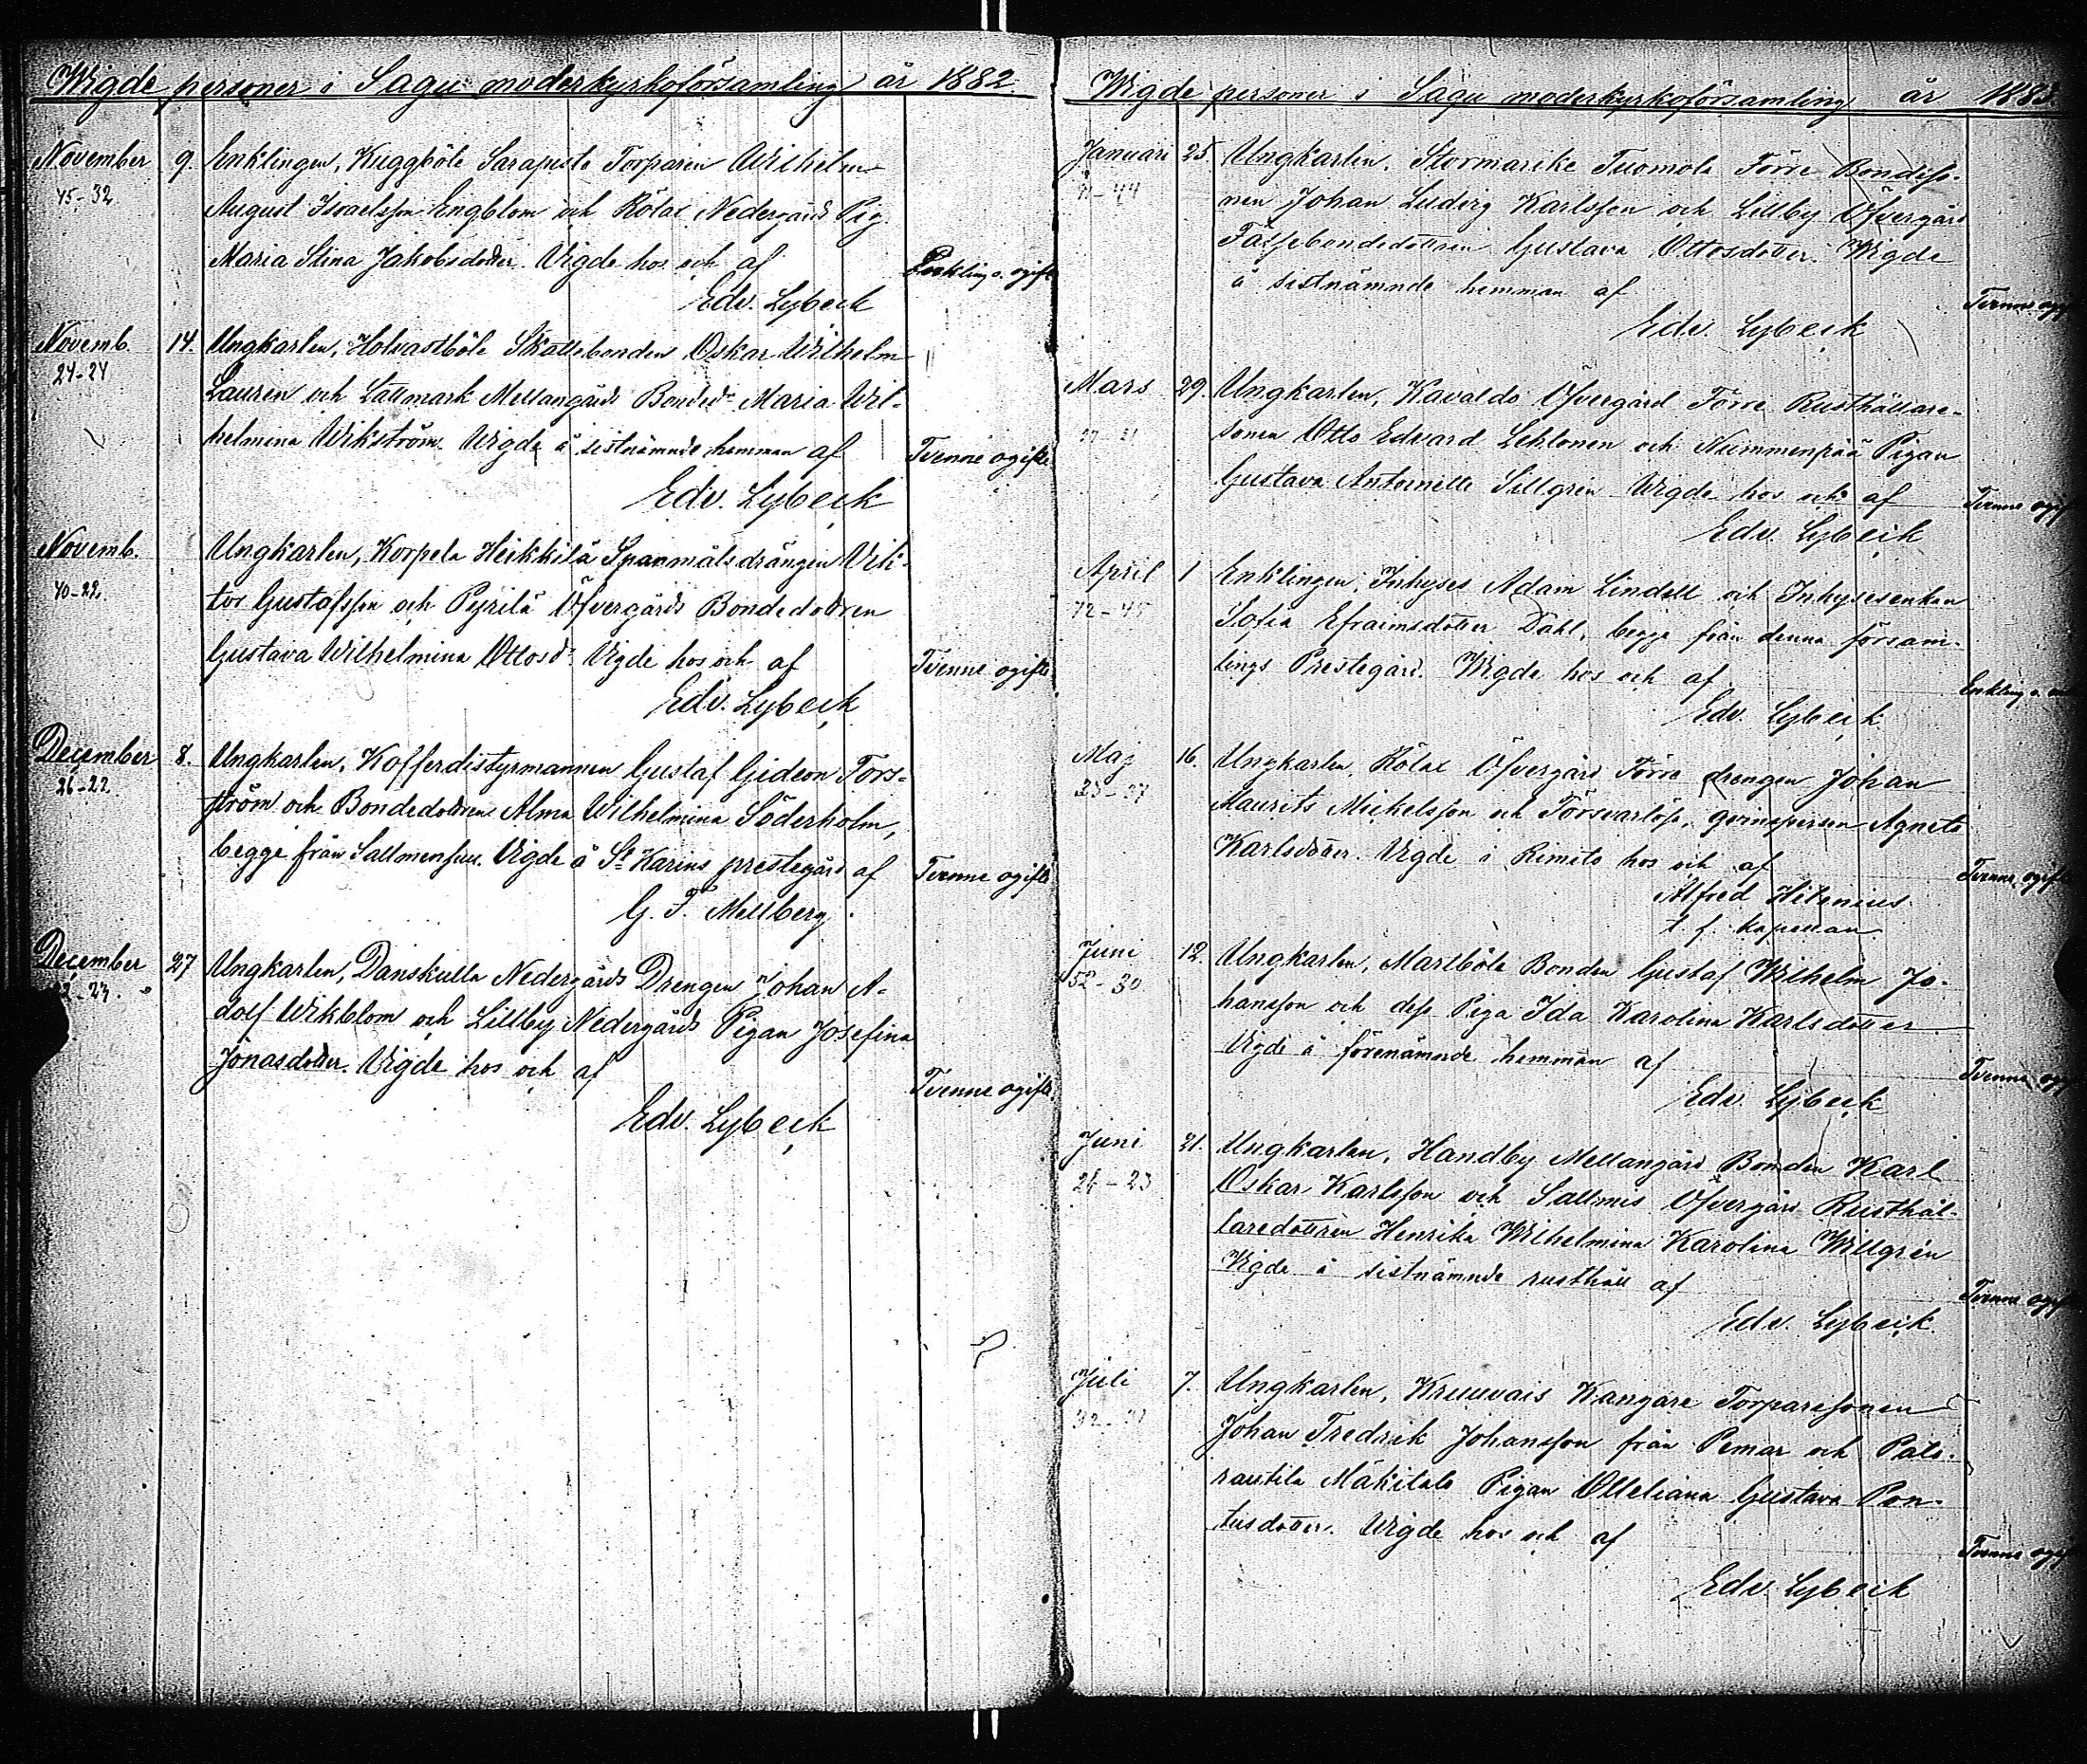 Wigde personer i Sagu moderkyrkoförsamling år 1882.
November 9. Enklingen, Kuggböle Sarapisto Torparen Wilhelm
45-32 August Israelsson Engblom och Rölax Nedergårds Pig.
Maria Stina Jakobsdotter. Vigde hos och af
Enkling o. ogift
Edv. Lybeck
Novemb. 14. Ungkarlen, Holvastböle Skattebonden Oskar Wilhelm
24-24
Lauren och Lättmark Mellangårds Bonded:r Maria Wil-
helmina Wikström. Vigde å sistnämnde hemman af
Tvenne ogifte
Edv. Lybeck
Novemb. Ungkarlen, Korpela Heikkilä Spanmålsdrängen Vik-
40-29.
tor Gustafsson och Pyrilä Öfvergårds Bondedottren
Gustava Wilhelmina Ottosd:r Vigde hos och af
Tvenne ogifte
Edv. Lybeck
December 8. Ungkarlen, Kofferdistyrmannen Gustaf Gideon Tors-
26-22.
ström och Bondedottren Alma Wilhelmina Söderholm,
begge från Sallmensuu. Vigde å S:t Karins prestegård af
Tvenne ogifte
G. F. Mellberg.
December 27 Ungkarlen, Danskulla Nedergårds Drengen Johan A-
dolf Wikblom och Lillby Nedergårds Pigan Josefina
Jonasdotter. Vigde hos och af
Tvenne ogifte.
Edv. Lybeck
Wigde personer i Sagu moderkyrkoförsamling år 1883.
Januari 25. Ungkarlen, Stormarike Tuomola Förre Bondesso-
nen Johan Ludvig Karlsson och Lillby Öfvergård
Fästebondedottren Gustava Ottosdotter. Wigde
å sistnämnde hemman af
Tvenne ogif
Edv. Lybeck
Mars 29. Ungkarlen, Kavaldo Öfvergård Förre Rusthållare-
sonen Otto Edvard Lehtonen och Nummenpää Pigan
Gustava Antoinette Sillgrén Wigde hos och af
Tvenne ogif
Edv. Lybeck
April 1 Enklingen, Inhyses Adam Lindell och Inhysesenkan
72-45
Sofia Efraimsdotter Dahl, begge från denna försam-
lings Prestegård. Wigde hos och af
Enkling o.
Edv. Lybeck
Maj 16. Ungkarlen, Rölax Öfvergård Förre drengen Johan
Maurits Mickelsson och Försvarlösa qvinsperson Agneta
Karlsdotter. Vigde i Rimito hos och af
Tvenne ogift
Alfred Hitonius
t. f. kapellan.
Juni 12. Ungkarlen, Marlböle Bonden Gustaf Wilhelm Jo-
52-30
hansson och dess Piga Ida Karolina Karlsdotter
Vigde å förenämnde hemman af
Tvenne ogif
Edv. Lybeck
Juni 21. Ungkarlen, Handby Mellangård Bonden Karl
26-23
Oskar Karlsson och Sallmis Öfvergård Rusthål-
laredottren Henrika Wilhelmina Karolina Willgrén
Vigde å sistnämnde rusthåll af
Tvenne ogif
Edv. Lybeck.
Juli 7. Ungkarlen, Kruuvais Kangare Torparesonen
Johan Fredrik Johansson från Pemar och Palo-
rautila Mäkitalo Pigan Otteliana Gustava Pon-
tusdotter. Vigde hos och af
Tvenne ogif
Edv. Lybeck